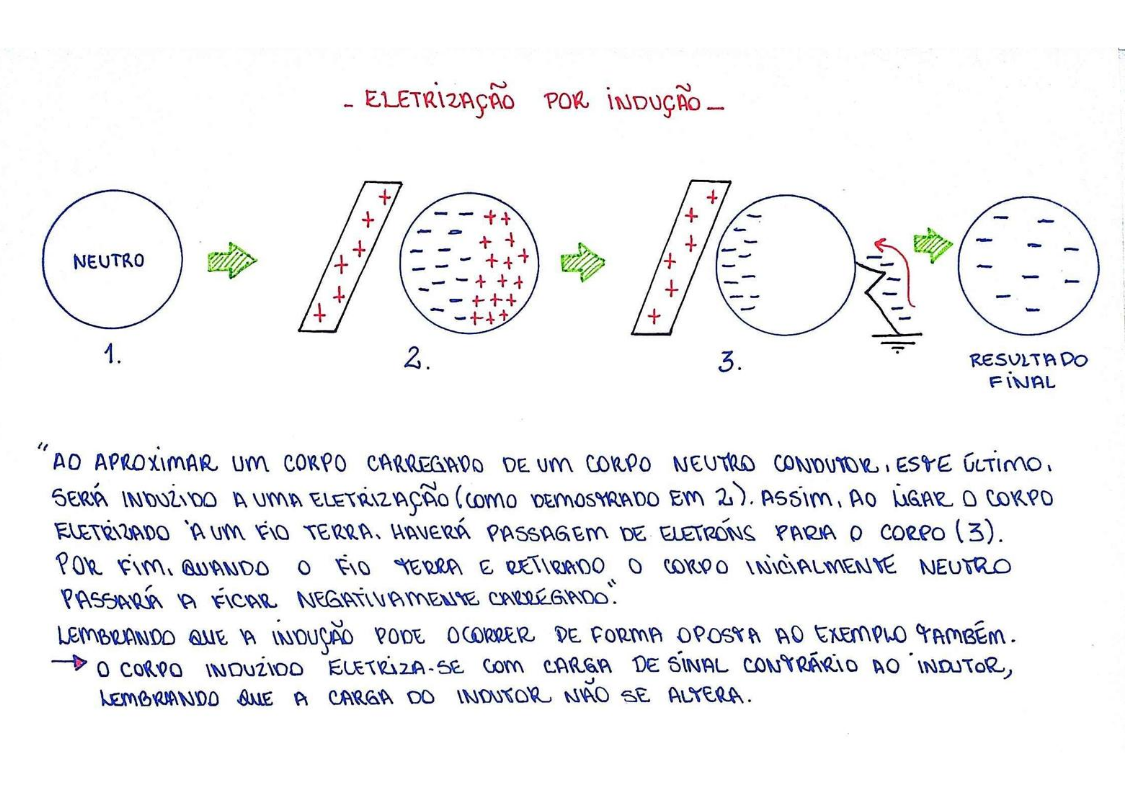 - ELETRIZAÇÃO POR INDUÇÃO -
NEUTRO
1.
2.
3.
RESULTADO
FINAL
"AO APROXIMAR UM CORPO CARREGADO DE UM CORPO NEUTRO CONDUTOR, ESTE ÚLTIMO,
SERÁ INDUZIDO A UMA ELETRIZAÇÃO (COMO DEMOSTRADO EM 2). ASSIM, AO LIGAR O CORPO
ELETRIZADO À UM FIO TERRA, HAVERÁ PASSAGEM DE ELETRÓNS PARA O CORPO (3).
POR FIM, QUANDO O FIO TERRA E RETIRADO O CORPO INICIALMENTE NEUTRO
PASSARÁ A FICAR NEGATIVAMENTE CARREGADO."
LEMBRANDO QUE A INDUÇÃO PODE OCORRER DE FORMA OPOSTA AO EXEMPLO TAMBÉM.
→ O CORPO INDUZIDO ELETRIZA-SE COM CARGA DE SINAL CONTRÁRIO AO INDUTOR,
LEMBRANDO QUE A CARGA DO INDUTOR NÃO SE ALTERA.